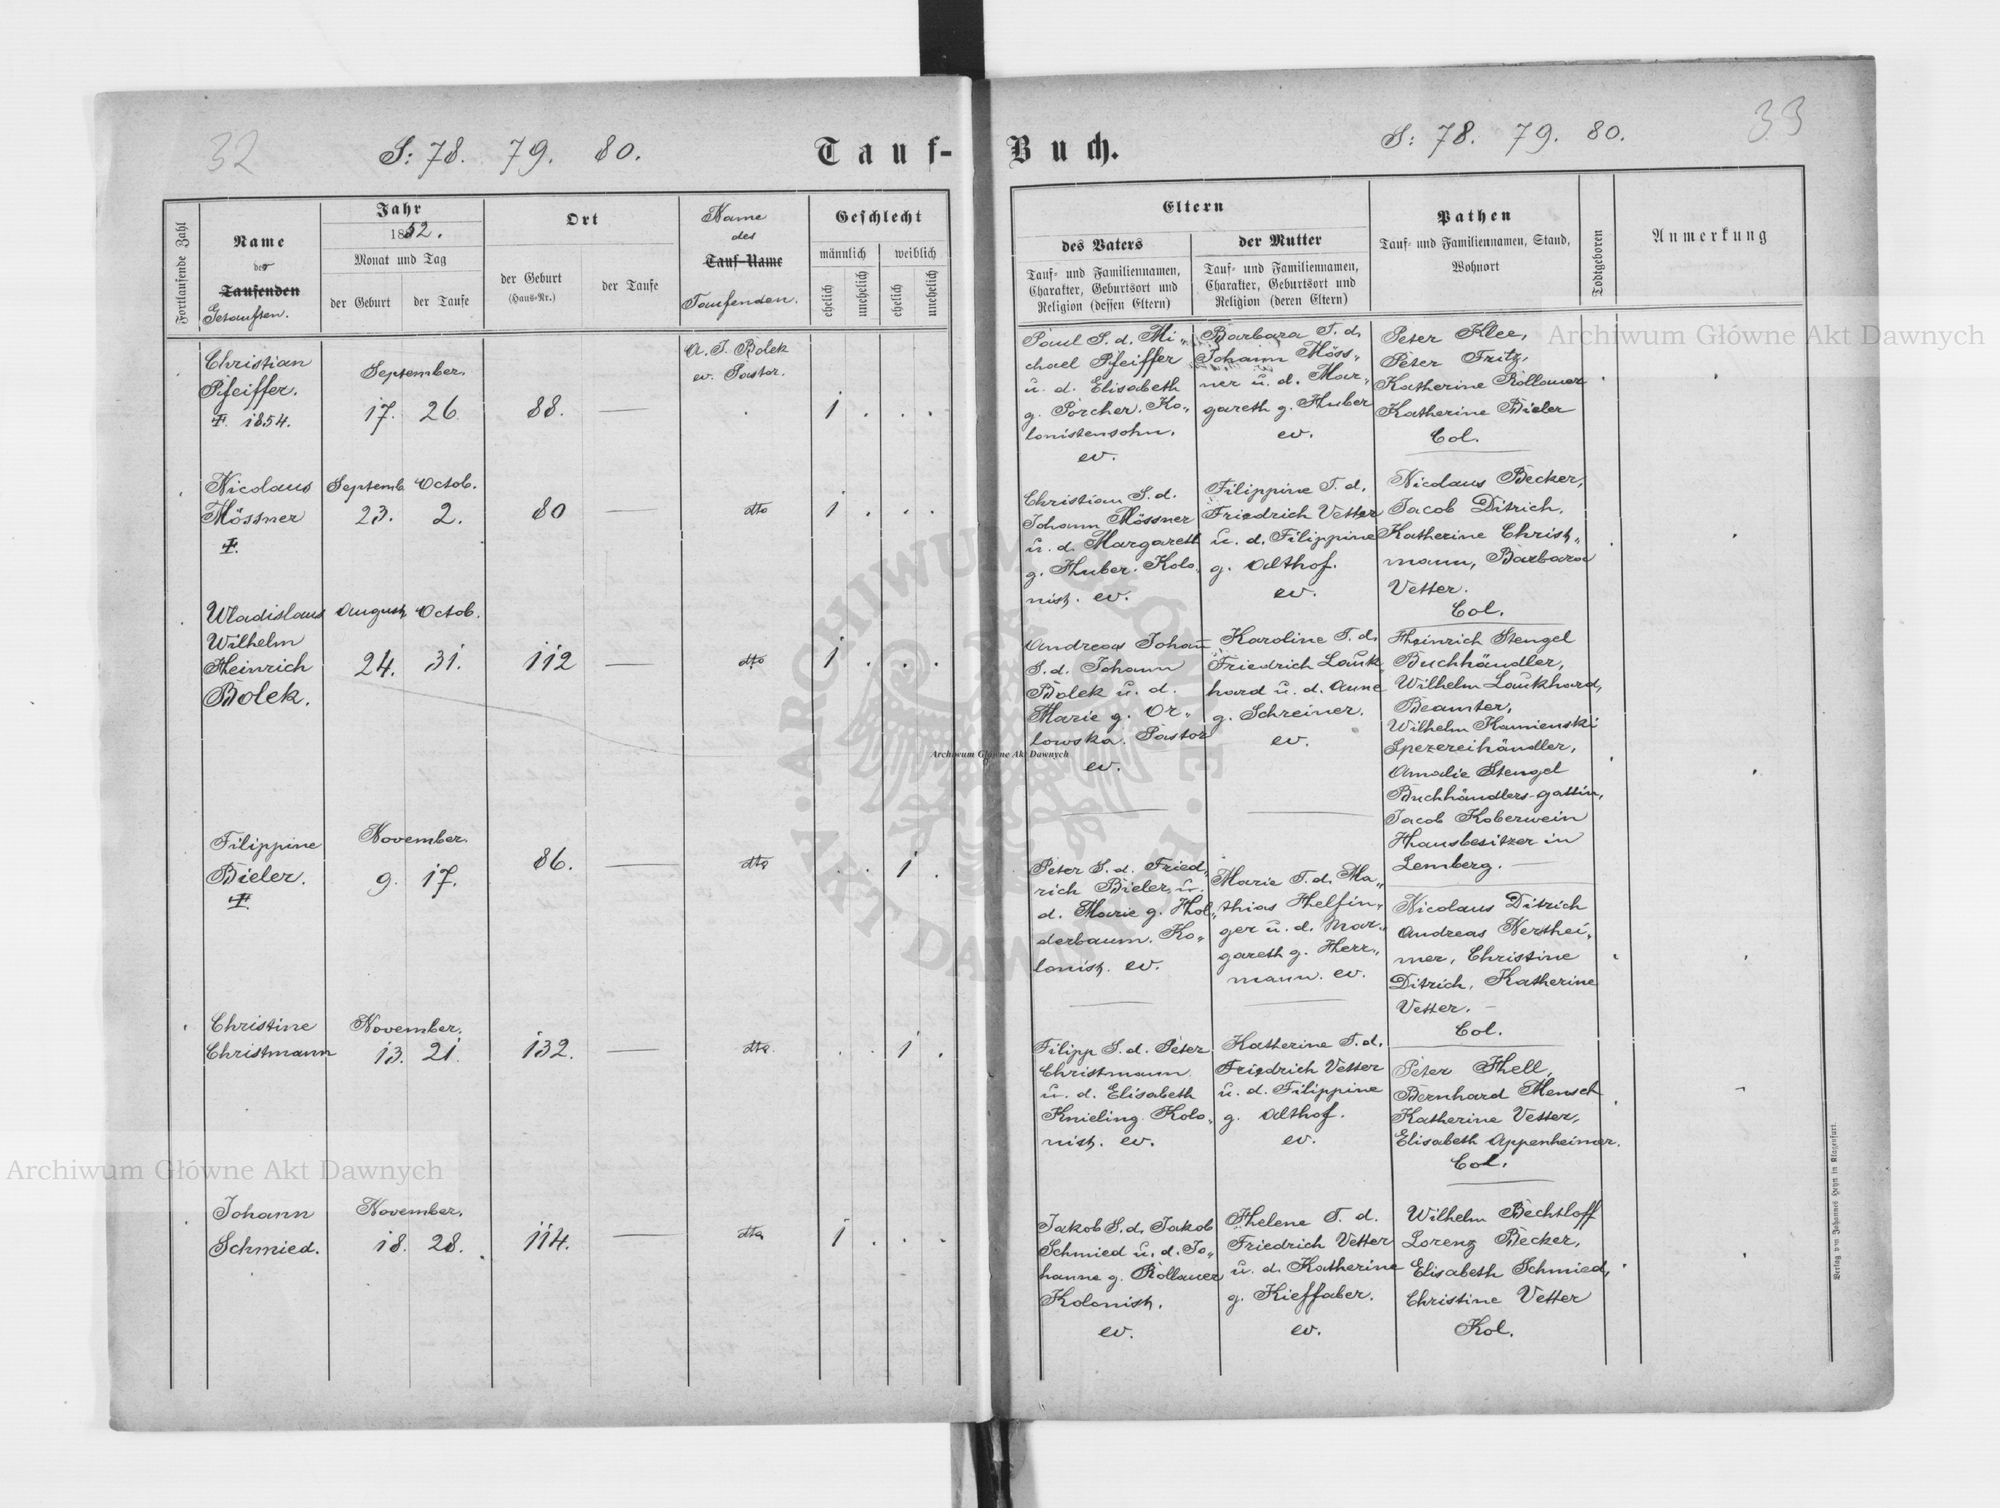 32
S: 78. 79. 80.
Tauf-
Fortlaufende Zahl
Name
der
Taufenden
Getauften.
Jahr
1852.
Monat und Tag
der Geburt
der Taufe
Ort
der Geburt
(Haus-Nr.)
der Taufe
Name
des
Tauf-Name
Taufenden.
Geschlecht
männlich
weiblich
ehelich
unehelich
ehelich
unehelich
Christian
Pfeiffer.
1854.
September.
17. 26.
88.
A. J. Bolek
ev. Pastor.
1
Nicolaus
Mössner
Septemb. Octob.
23. 2.
80
dto
1
Wladislaus
Wilhelm
Heinrich
Bolek.
August Octob.
24. 31.
112
dto
1
Filippine
Bieler.
November.
9. 17.
86.
dto
1
Christine
Christmann
November.
13. 21.
132.
dto.
1
Johann
Schmied.
November.
18. 28.
114.
dto
1
33
S: 78. 79. 80.
Buch.
Eltern
des Vaters
Tauf- und Familiennamen,
Charakter, Geburtsort und
Religion (dessen Eltern)
der Mutter
Tauf- und Familiennamen,
Charakter, Geburtsort und
Religion (deren Eltern)
Pathen
Tauf- und Familiennamen, Stand,
Wohnort
Todtgeboren
Anmerkung
Paul S. d. Mi-
chael Pfeiffer
u. d. Elisabeth
g. Porcher. Ko-
lonistensohn.
ev.
Barbara T. d.
Johann Möss-
ner u. d. Mar-
gareth g. Huber
ev.
Peter Klee,
Peter Fritz,
Katherine Rollauer
Katherine Bieler
Col.
Christian S. d.
Johann Mössner
u. d. Margareth
g. Huber. Kolo-
nist. ev.
Filippine T. d.
Friedrich Vetter
u. d. Filippine
g. Althof.
ev.
Nicolaus Becker,
Jacob Ditrich,
Katherine Christ-
mann, Barbara
Vetter.
Col.
Andreas Johann
S. d. Johann
Bolek u. d.
Marie g. Or-
lowska. Pastor
ev.
Karoline T. d.
Friedrich Lauk-
hard u. d. Anne
g. Schreiner.
ev.
Heinrich Stengel
Buchhändler,
Wilhelm Laukhard,
Beamter,
Wilhelm Kamienski
Spezereihändler,
Amalie Stengel
Buchhändlers-gattin,
Jacob Koberwein
Hausbesitzer in
Lemberg.
Peter S. d. Fried-
rich Bieler, u.
d. Marie g. Hol-
derbaum. Ko-
lonist. ev.
Marie T. d. Ma-
thias Helfin-
ger u. d. Mar-
gareth g. Herr-
mann. ev.
Nicolaus Ditrich
Andreas Nerthei-
mer, Christine
Ditrich, Katherine
Vetter.
Col.
Filipp S. d. Peter
Christmann
u. d. Elisabeth
Knieling. Kolo-
nist. ev.
Katherine T. d.
Friedrich Vetter
u. d. Filippine
g. Althof.
ev.
Peter Hell,
Bernhard Mensch
Katherine Vetter,
Elisabeth Appenheimer.
Col.
Jakob S. d. Jakob
Schmied u. d. Jo-
hanne g. Rollauer
Kolonist.
ev.
Helene T. d.
Friedrich Vetter
u. d. Katherine
g. Kieffaber.
ev.
Wilhelm Bechtloff
Lorenz Becker,
Elisabeth Schmied,
Christine Vetter
Kol.
Verlag von Johannes Heyn in Klagenfurt.
Archiwum Główne Akt Dawnych
Archiwum Główne Akt Dawnych
Archiwum Główne Akt Dawnych
ARCHIWUM GŁÓWNE AKT DAWNYCH